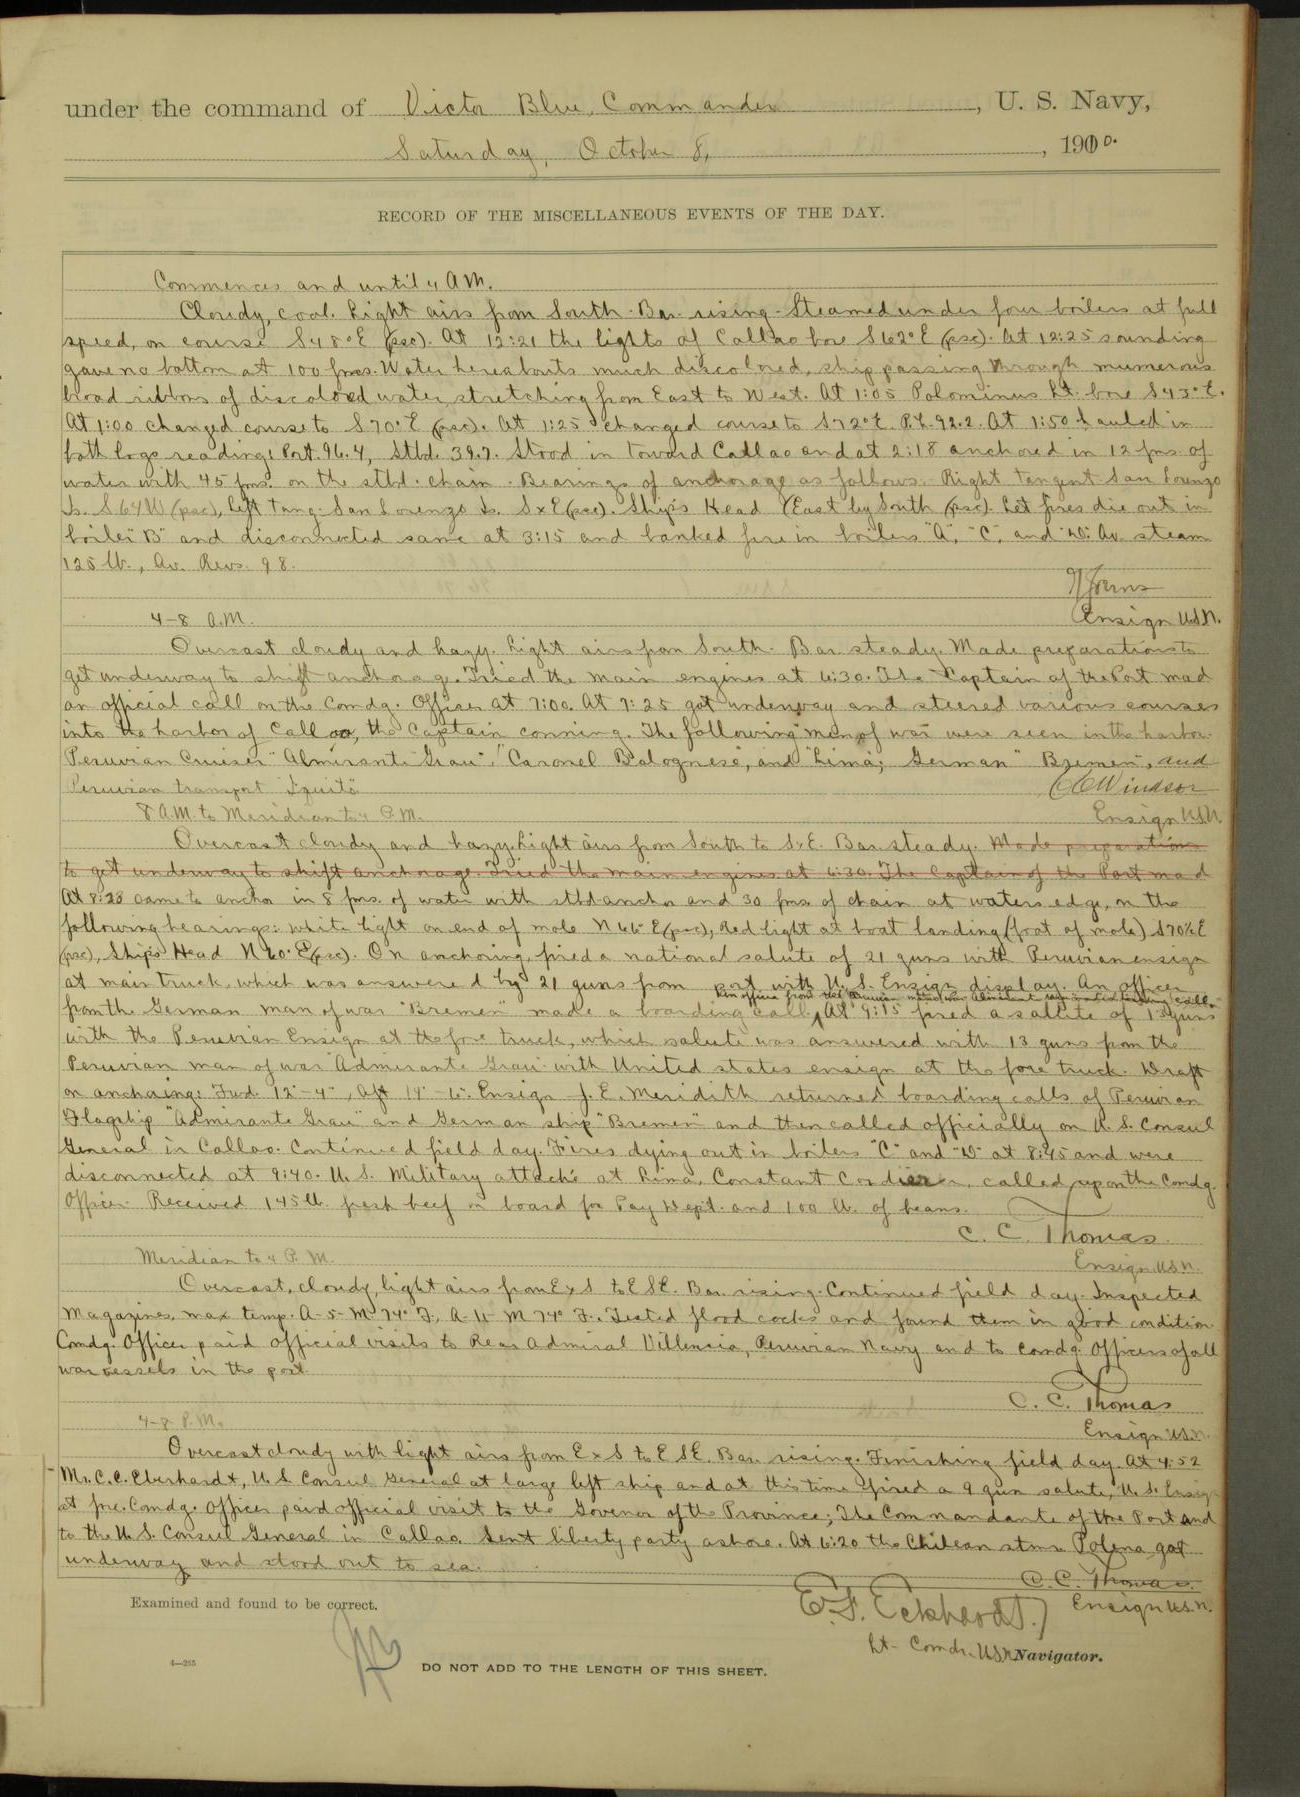 under the command of Victor Blue, Commander, U. S. Navy,
Saturday, October 8, 1910.
RECORD OF THE MISCELLANEOUS EVENTS OF THE DAY.
Commences and until 4 A.M.
Cloudy, cool. Light airs from South. Bar. rising. Steamed under four boilers at full
speed, on course S 48° E (psc). At 12:21 the lights of Callao bore S 62° E (psc). At 12:25 sounding
gave no bottom at 100 fms. Water hereabouts much discolored, ship passing through numerous
broad ribbons of discolored water, stretching from East to West. At 1:05 Palominus Lt. bore S 43° E.
At 1:00 changed course to S 70° E (psc). At 1:25 changed course to S 72° E. P.L. 92.2. At 1:50 hauled in
both logs reading: Port. 96.4, Stbd. 39.7. Stood in toward Callao and at 2:18 anchored in 12 fms. of
water with 45 fms. on the stbd. chain. Bearings of anchorage as follows. Right tangent San Lorenzo
Is. S 64 W (psc), Left Tang. San Lorenzo Is. S x E (psc). Ship's Head (East by South (psc). Let fires die out in
boiler "B" and disconnected same at 3:15 and banked fire in boilers "A", "C", and "D". Av. steam
125 lb., Av. Revs. 98.
Ensign U.S.N.
4-8 A.M.
Overcast cloudy and hazy. Light airs from South. Bar. steady. Made preparations to
get underway to shift anchorage. Tried the main engines at 6:30. The Captain of the Port mad
an official call on the Comdg. Officer at 7:00. At 7:25 got underway and steered various courses
into the harbor of Callao, the Captain conning. The following men of war were seen in the harbor.
Peruvian Cruiser "Almirante Grau", "Caronel Bolognese", and "Lima; German "Bremen", and
Peruvian transport Iquito
C C Windsor
8 A.M. to Meridian to 4 P.M.
Ensign U.S.N.
Overcast cloudy and hazy. Light airs from South to SxE. Bar. steady. Made preparations
to get underway to shift anchorage. Tried the main engines at 6:30. The Captain of the Port mad
At 8:28 came to anchor in 8 fms. of water with stbd anchor and 30 fms. of chain at waters edge, on the
following bearings: white light on end of mole N 66° E (psc), Red light at boat landing (foot of mole) S 70½ E
(psc), Ship's Head N 60° E (psc). On anchoring, fired a national salute of 21 guns with Peruvian ensign
at main truck, which was answered by 21 guns from port with U. S. Ensign display. An officer
from the German man of war "Bremen" made a boarding call. At 9:15 fired a salute of 13 guns
with the Peruvian Ensign at the fore truck, which salute was answered with 13 guns from the
Peruvian man of war Admirante Grau with United states ensign at the fore truck. Draft
on anchoring: Fwd. 12'-4", Aft 14'-6". Ensign J. E. Meridith returned boarding calls of Peruvian
Flagship "Admirante Grau" and German ship "Bremen" and then called officially on U. S. Consul
General in Callao. Continued field day. Fires dying out in boilers "C" and "D" at 8:45 and were
disconnected at 9:40. U. S. Military attaché at Lima, Constant Cordier, called upon the Comdg.
Officer. Received 145 lb. fresh beef on board for Pay Dept. and 100 lb. of beans.
C. C. Thomas
Meridian to 4 P.M.
Ensign U.S.N.
Overcast, cloudy, light airs from ExS to ESE. Bar. rising. Continued field day. Inspected
Magazines, max temp. A-5-M 74° F., A-6-M 74° F. Tested flood cocks and found them in good condition.
Comdg. Officer paid official visits to Rear Admiral Villencia, Peruvian Navy and to Comdg. Officers of all
war vessels in the port.
C. C. Thomas
4-8 P.M.
Ensign U.S.N.
Overcast cloudy with light airs from ExS to ESE. Bar. rising. Finishing field day. At 4:52
Mr. C. C. Eberhardt, U.S. Consul General at large left ship and at this time fired a 9 gun salute, U.S. Ensign
at fore. Comdg. Officer paid official visit to the Govenor of the Province; The Commandante of the Port and
to the U.S. Consul General in Callao. Sent liberty party ashore. At 6:20 the Chilean stmr. Palena got
underway and stood out to sea.
C. C. Thomas.
Ensign U.S.N.
Examined and found to be correct.
E. F. Eckhardt
Lt- Comdr. U.S.N Navigator.
4—255
DO NOT ADD TO THE LENGTH OF THIS SHEET.